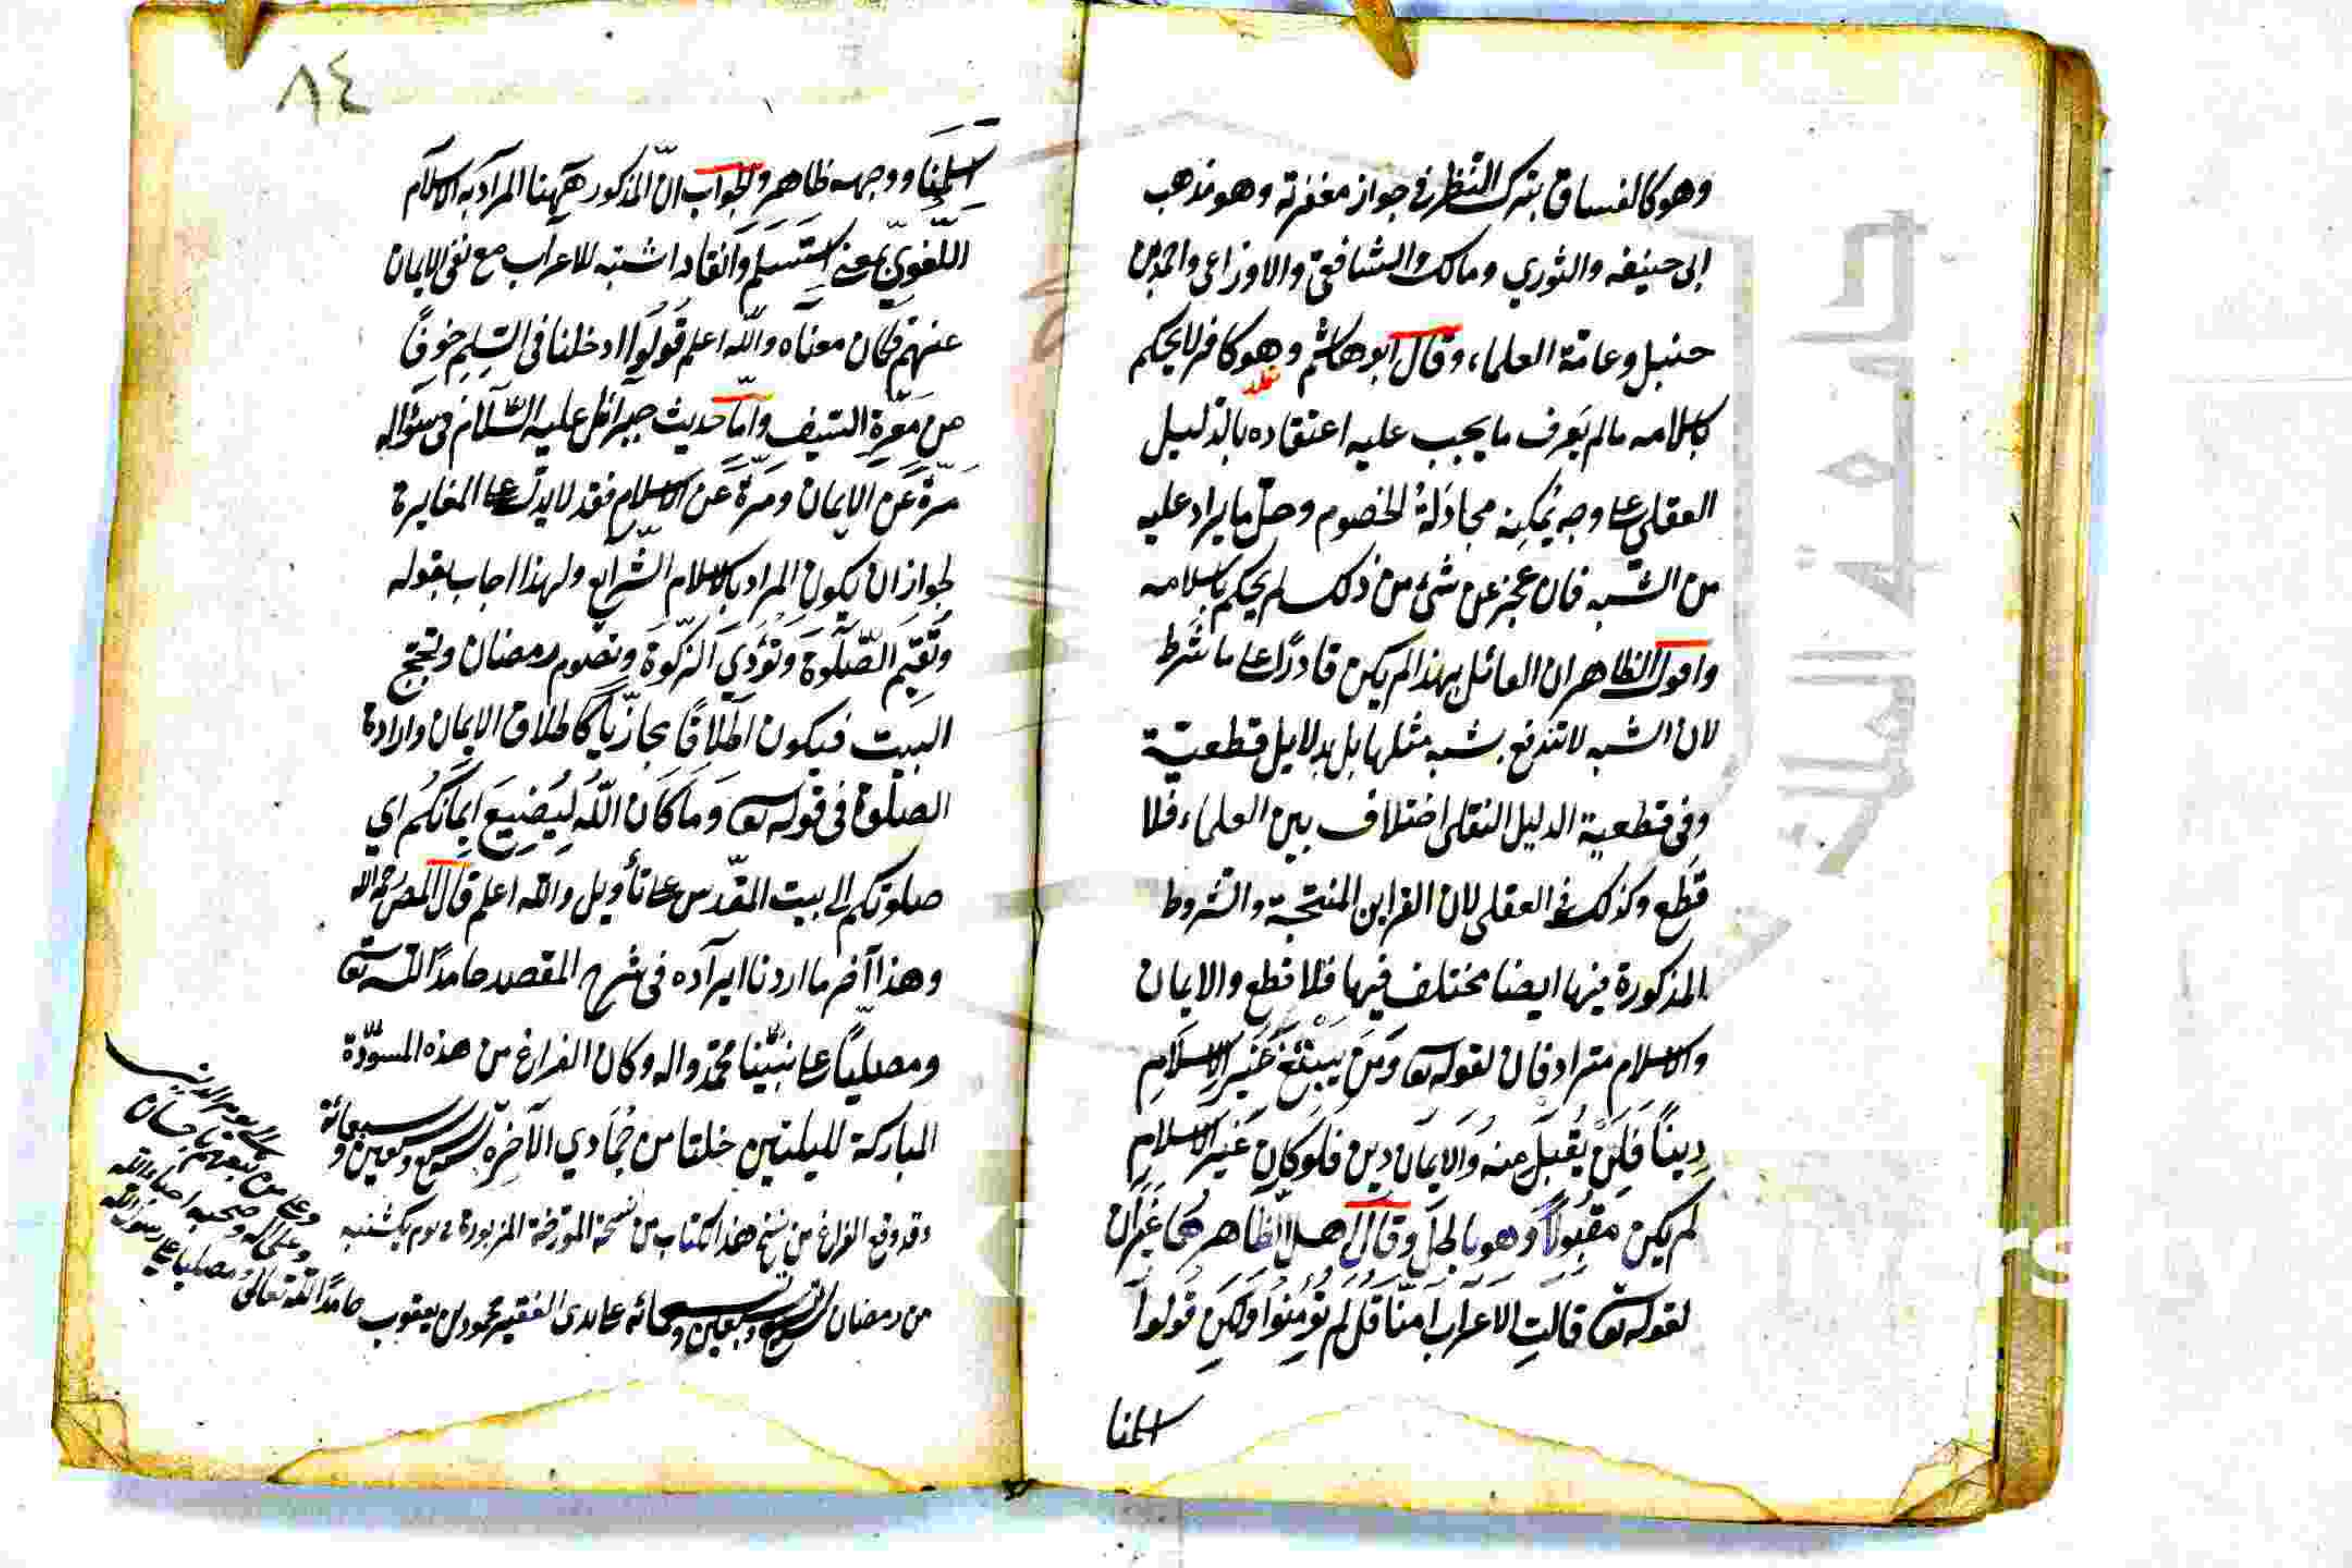 وهو كالفساق بترك النظر في جواز مغفرته وهو مذهب
ابى حنيفه والثوري ومالك والشافعي والاوزاعي واحمد بن
حنبل وعامة العلماء، وقال ابو هاشم وهو كافر لا يحكم
باسلامه مالم يعرف ما يجب عليه اعتقاده بالدليل
العقلي على وجه يُمكِنه مجادَلة الخصوم وحلّ ما يراد عليه
من الشبه فان عجز عن شئ من ذلك لم يحكم باسلامه
واقول الظاهر ان القائل بهذا لم يكن قادرًا على ما شَرط
لان الشبه لا تندفع بشبه مثلها بل بدلايل قطعيّة
وفي قطعية الدليل النقلي اختلاف بين العلماء فلا
قَطع وكذلك في العقلي لان القراين المنتجة والشروط
المذكورة فيها ايضا مختلف فيها فلا قطع والايمان
والاسلام مترادفان لقوله تعا وَمَن يَبتَغ غَيرَ الاِسلامِ
دِيناً فَلَن يُقبَلَ مِنه وَالايمان دين فلو كان غير الاسلام
لم يكن مقبُولاً وهو باطل وقال اهل الظاهر هما غيران
لقوله تعا قالتِ الاَعراب اٰمنّا قُل لم تؤمِنوا ولكن قُولوا
اسلمنا
٨٤
اسلمنا ووجهه ظاهر والجواب انّ المذكور هٰهنا المراد به الاسلام
اللّغويّ بمعنى استسلم وانقاد اثبته للاعراب مع نفى الايمان
عنهم فكان معناه والله اعلم قُولُوا ادخلنا فى السِّلم خوفًا
من معرّة السّيف وامّا حديث جبرائل عليه السّلام في سؤاله
مرّةً عن الايمان ومرّةً عن الاسلام فقد لا يدلّ على المغايرة
لجواز ان يكون المراد بالاسلام الشرايع ولهذا اجاب بقوله
وتُقيم الصّلوة وتؤدي الزكوة وتصوم رمضان وتحجّ
البيت فيكون اطلاقًا مجازيّاً كاطلاق الايمان وارادة
الصلوة فى قوله تعا وَمَا كانَ اللهُ ليُضِيعَ اِيمانكُم اي
صلوتكم الى بيت المقدّس على تأويل والله اعلم قال المص رحمه الله
وهذا آخر ما اردنا ايراده فى شرح المقصد حامدًا لله تعا
ومصليّاً على نبيّنا محمّد واله وكان الفراغ من هذه المسوّدة
المباركة لليلتين خلتا من جُمَادي الآخِرة سنة تسع وسبعين وسبعمائة
وقد وقع الفراغ من نسخ هذا الكتاب من نسخة المؤرخة المزبورة في يوم يكشنبه
من رمضان سنة تسع وسبعين وسبعمائه على يدى الفقير محمود بن يعقوب حامدًا لله تعالى ومصليا على رسول الله
وعلى آله وصحبه احباء الله
وعلى من تبعهم باحسان
الى يوم الدين